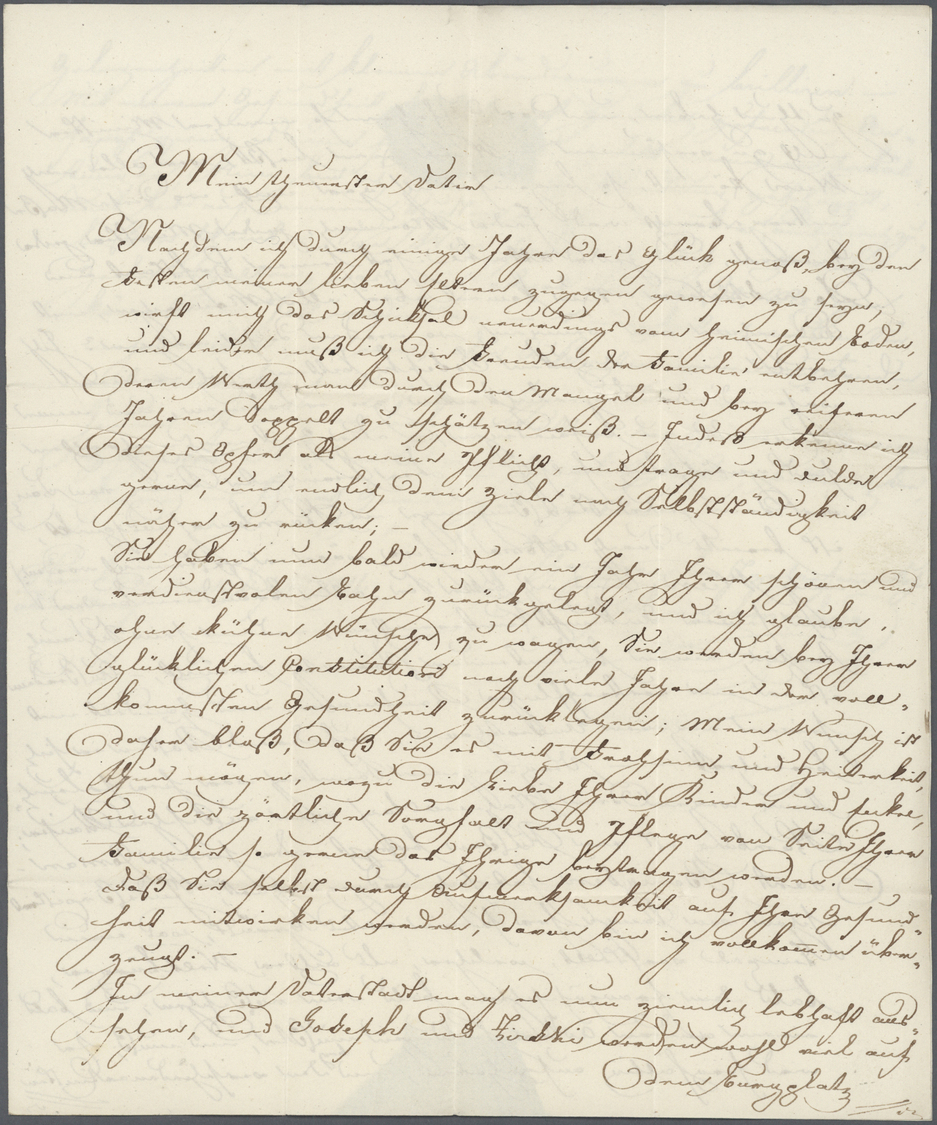 Mein theuerster Vater
Nachdem ich durch einige Jahre das Glück genoß, bey den
Festen meiner lieben Aeltern zugegen gewesen zu seyn,
wirft mich das Schicksal neuerdings vom heimischen Boden,
und leider muß ich die Freuden der Familie entbehren,
deren Werth man durch den Mangel und bey reiferen
Jahren doppelt zu schätzen weiß. – Indeß erkenne ich
dieses Opfer als meine Pflicht, und trage und dulde
gerne, um endlich dem Ziele nach Selbstständigkeit
näher zu rücken; –
Sie haben nun bald wieder ein Jahr Ihrer schönen und
verdienstvolen Bahn zurückgelegt, und ich glaube,
ohne kühne Wünsche zu wagen, Sie werden bey Ihrer
glücklichen Constitution noch viele Jahre in der voll-
kommsten Gesundheit zurücklegen; Mein Wunsch ist
daher bloß, daß Sie es mit Frohsinn und Heiterkeit,
thun mögen, wozu die Liebe Ihrer Kinder und Enkel,
und die zärtliche Sorgfalt und Pflege von Seite Ihrer
Familie so gerne das Ihrige beytragen werden. –
Daß Sie selbst durch Aufmerksamkeit auf Ihre Gesund-
heit mitwirken werden, davon bin ich vollkomen über-
zeugt. –
In meiner Vaterstadt mag es nun ziemlich lebhaft aus-
sehen, und Joseph und werden wohl viel auf
dem Burgplatz